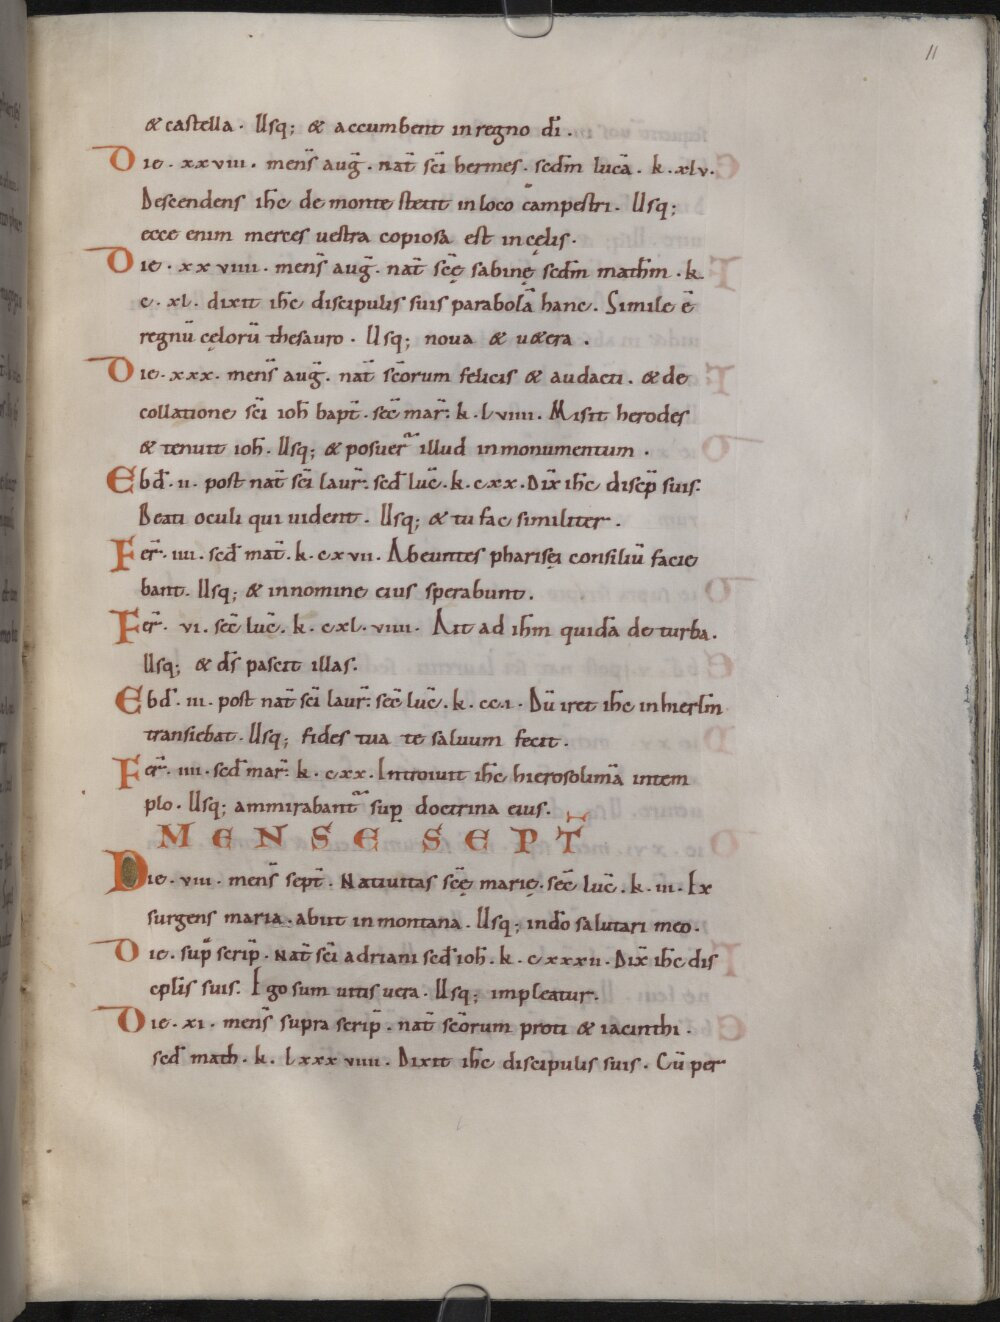 11
& castella. Usq; & accumbent in regno dī.
Die. xxviii. menš aug̃. nat̄ scī hermes. secdm̄ lucā. k. xlv.
Descendens ih̄c de monte stetit in loco campestri. Usq;
ecce enim merces uestra copiosa est in cęlis.
Die. xxviiii. menš aug̃. nat̄ scę̄ sabinę secdm̄ math̄m. k.
c. xl. dixit ih̄c discipulis suis parabolā hanc. Simile ē
regnū cęlorū thesauro. Usq; noua & u&era.
Die. xxx. menš aug̃. nat̄ scōrum felicis & audacti. & de
collatione scī ioh̄ bapt̄. sec̄ mar̄. k. lviiii. Misit herodes
& tenuit ioh̄. Usq; & posuer̄ illud in monumentum.
Ebd̄. ii. post nat̄ scī laur̄. secd̄ luc̄. k. cxx. Dix̄ ih̄c discip̄ suis.
Beati oculi qui uident. Usq; & tu fac similiter.
Fer̄. iiii. secd̄ mat̄. k. cxvii. Abeuntes pharisęi consiliū facie
bant. Usq; & in nomine eius sperabunt.
Fer̄. vi. sec̄ luc̄. k. cxl. viiii. Ait ad ih̄m quidā de turba.
Usq; & dš pascit illas.
Ebd̄. iii. post nat̄ scī laur̄. sec̄ luc̄. k. cc.i. Dū iret ih̄c in hierlm̄
transiebat. Usq; fides tua te saluum fecit.
Fer̄. iiii. secd̄ mar̄. k. cxx. Introiuit ih̄c hierosolimā in tem
plo. Usq; ammirabant̄ sup̱ doctrina eius.
MENSE SEPT̄
Die. viii. menš sept̄. Natiuitas scę̄ marię. sec̄ luc̄. k. iii. Ex
surgens maria. abiit in montana. Usq; in dō salutari meo.
Die. sup̄ scrip̄. nat̄ scī adriani secd̄ ioh̄. k. cxxxii. Dix̄ ih̄c dis
cplīs suis. Ego sum uitis uera. Usq; impleatur.
Die. xi. menš supra scrip̄. nat̄ scōrum proti & iacinthi.
secd̄ math. k. lxxxviiii. Dixit ih̄c discipulis suis. Cū per